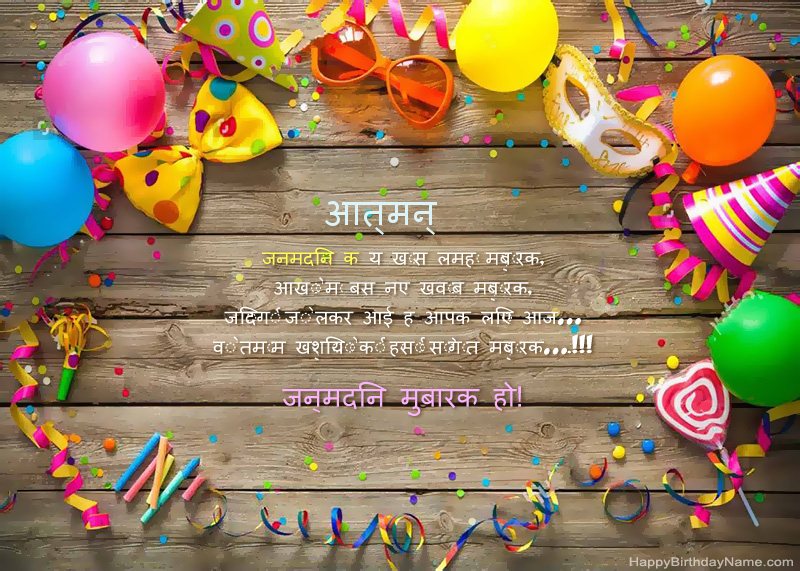 आत्मन्
जनमदनि क य खास लमहा मबारक,
आखों में बस नए खवाब मबारक,
जदिगी जो लेकर आई ह आपक लएि आज...
वो तमाम खशयिों की हसीं सौगात मबारक....!!!
जन्मदनि मुबारक हो!
HappyBirthdayName.com